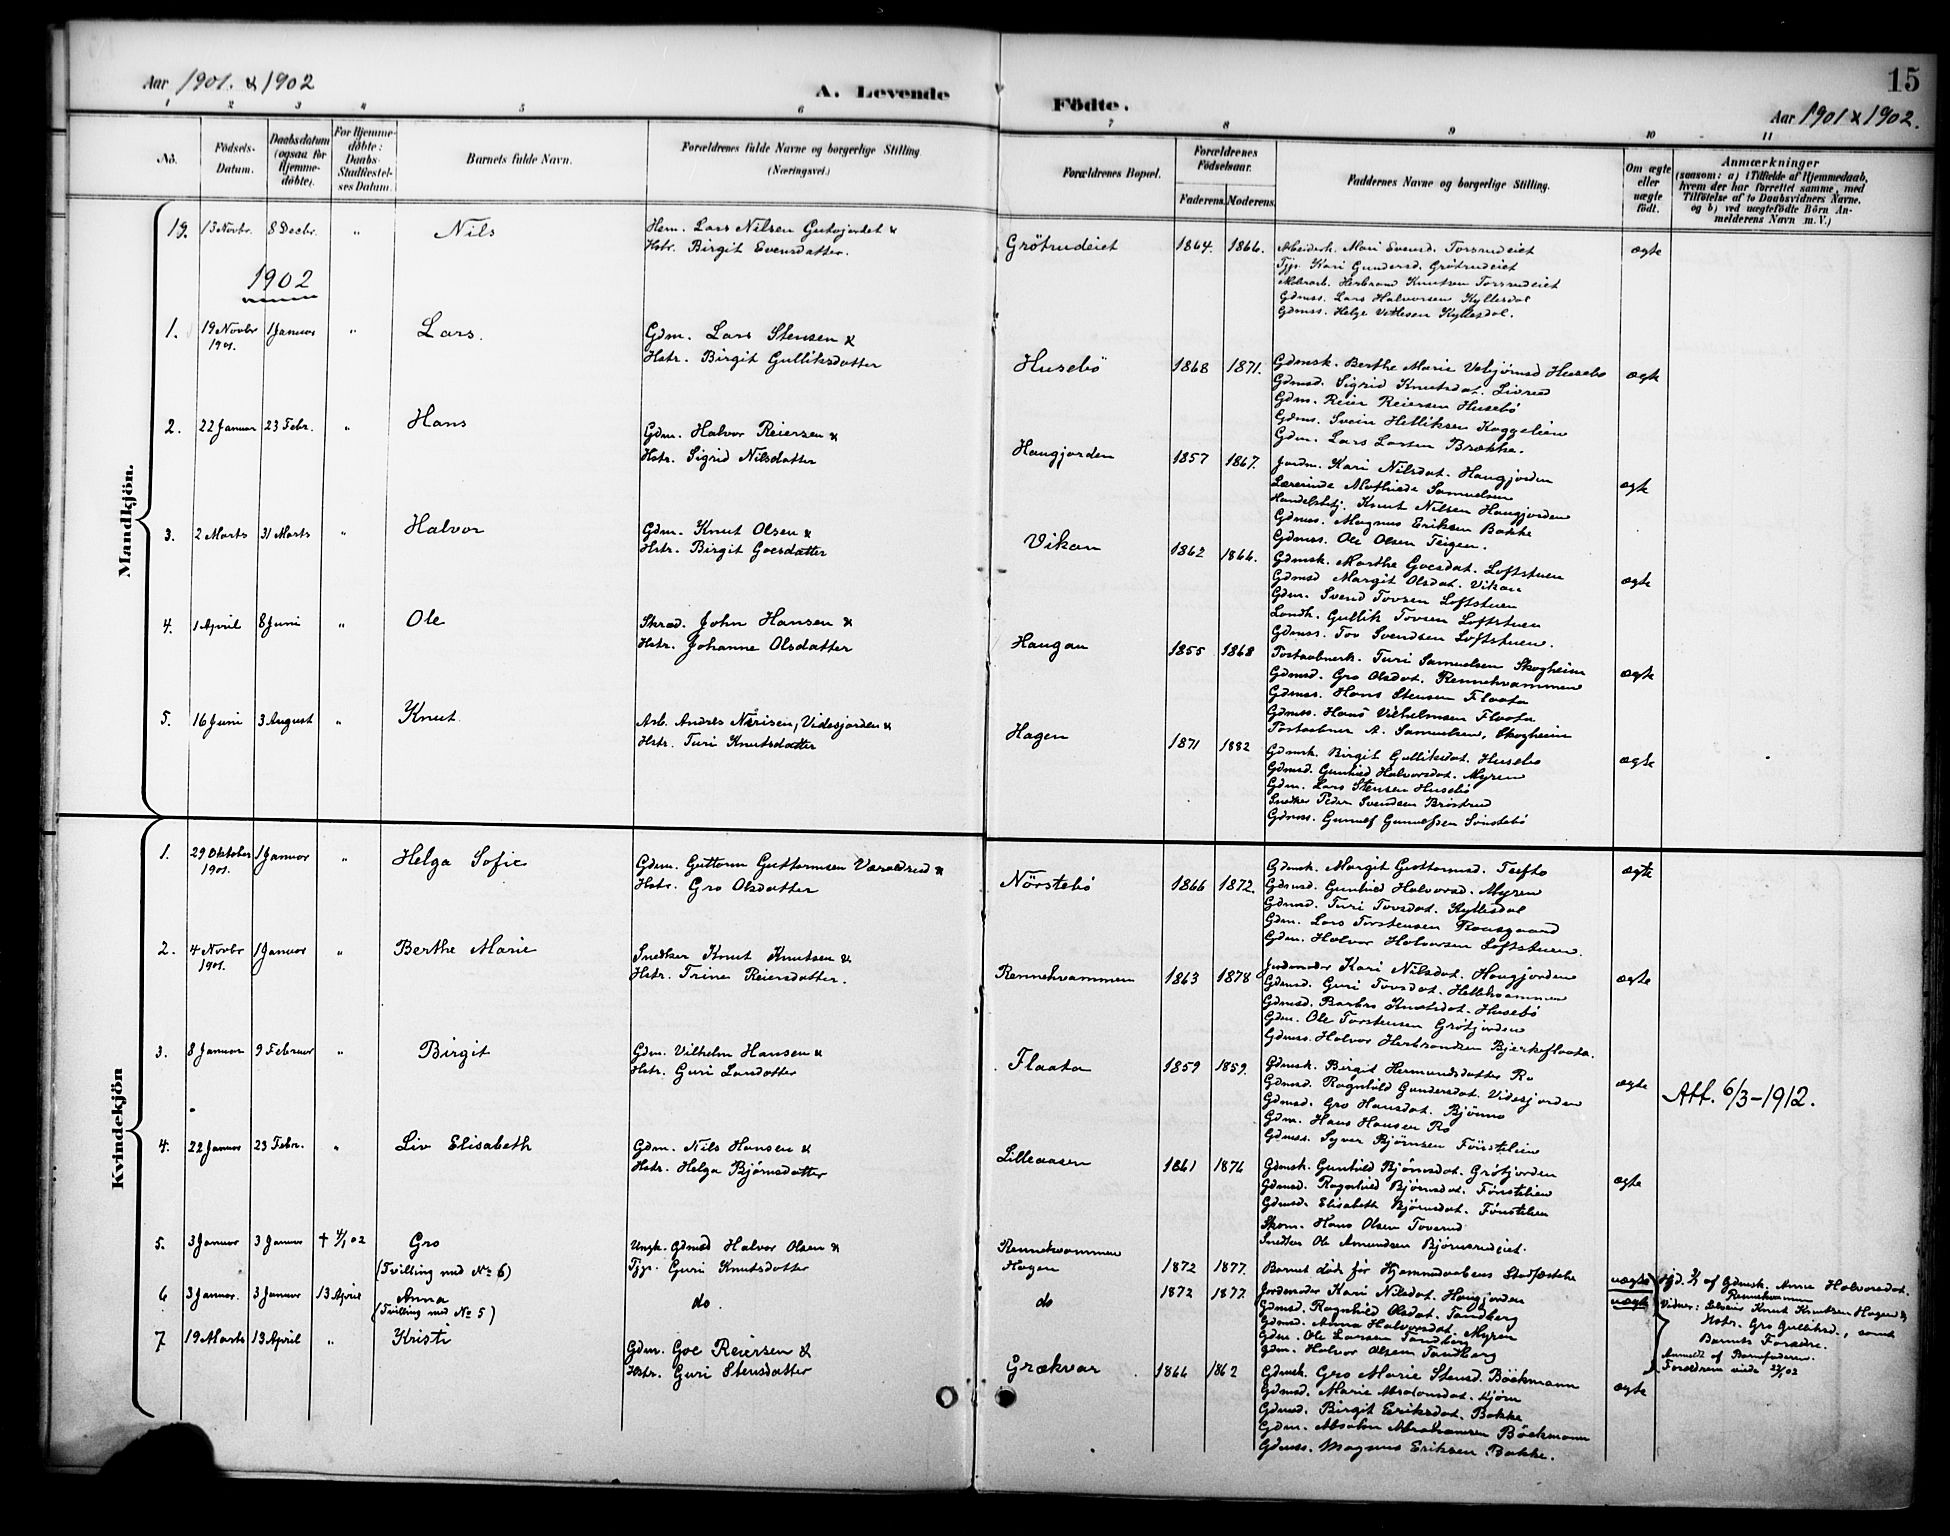 Aar 1901. & 1902
A. Levende Födte.
15
Aar 1901 & 1902.
1 2 3 4 5 6 7 8 9 10 11
No.
Födsels-Datum.
Daabsdatum (ogsaa for Hjemme-døbte).
For Hjemme-døbte: Daabs-Stadfæstel-ses Datum.
Barnets fulde Navn.
Forældrenes fulde Navne og borgerlige Stilling. (Næringsvei.)
Forældrenes Bopæl.
Forældrenes Födselsaar.
Faderens. Moderens.
Faddernes Navne og borgerlige Stilling.
Om ægte eller uægte født.
Anmærkninger
(saasom: a) i Tilfælde af Hjemmedaab, hvem der har forrettet samme, med Tilföielse af to Daabsvidners Navne. og b) ved uægtefödte Börn An-melderens Navn m. V.)
Mandkjön.
19. 13 Novbr. 8 Decbr. " Nils
Hem. Lars Nilsen Gutujordet &
Hstr. Birgit Evensdatter.
Grötrudeiet 1864. 1866.
Arbeidersk. Mari Evensd. Torsrudeiet
Tjp. Kari Gundersd. Grötrudeiet
Herbrand Knutsen Torsrudeiet
Gdmss. Lars Halvorsen Kyllesdal
Gdmss. Helge Vetlesen Kyllesdal.
ægte
1902
1. 19 Novbr 1901. 1 Januar " Lars.
Gdm. Lars Stensen &
Hstr. Birgit Gulliksdatter
Husebö 1868 1871.
Gdmsk. Berthe Marie Vebjørnsd Husebo
Gdmsd. Sigrid Knutsdat. Livrud
Gdm. Reier Reiersen Husebö
Gdms. Svein Helliksen Koggelien
Gdm. Lars Larsen Brække.
ægte
2. 22 Januar 23 Febr. " Hans
Gdm. Halvor Reiersen &
Hstr. Sigrid Nilsdatter
Haugjorden 1857 1867.
Jordm. Kari Nilsdat. Haugjorden
Lærerinde Mathilde Samuelsen
Handelsbetj. Knut Nilsen Haugjorden
Gdmss. Magnus Eriksen Bakke
Gdmss. Ole Olsen Teigen.
ægte
3. 2 Marts 31 Marts " Halvor
Gdm. Knut Olsen &
Hstr. Birgit Goesdatter
Vikan 1862 1866.
Gdmsk. Marthe Goesdat. Loftstuen
Gdmsd Margit Olsdat. Vikan
Gdm. Svend Tovsen Loftstuen
Landh. Gullik Tovsen Loftstuen
Gdmss. Tov Svendsen Loftstuen.
ægte
4. 1 April 8 Juni " Ole
Skræd. John Hansen &
Hstr. Johanne Olsdatter
Haugan 1855 1868
Postaabnersk. Turi Samuelsen Skogheim
Gdmsd. Gro Olsdat. Rennehvammen
Gdmss. Hans Stensen Flaata
Gdmss. Hans Vilhelmsen Flaata
Postaabner A. Samuelsen, Skogheim
ægte
5. 16 Juni 3 August " Knut
Arb. Andres Nerisen, Videsjorden &
Hstr. Turi Knutsdatter
Hagen 1871 1882
Gdmsk. Birgit Gulliksdat. Husebö
Gdmsd. Gunhild Halvorsdat. Myren
Gdm. Lars Stensen Husebö
Snedker Peder Svendsen Bröstrud
Gdmss. Gunulf Gunulfsen Sönstebö
ægte
Kvindekjön
1. 29 Oktober 1901. 1 Januar " Helga Sofie
Gdm. Guttorm Guttormsen Væraldrud &
Hstr. Gro Olsdatter
Nörstebö 1866 1872.
Gdmsk. Margit Guttormsd. Tufto
Gdmsd. Gunhild Halvorsd. Myren
Gdmsd. Turi Tovsdat. Kyllesdal
Gdm. Lars Torstensen Roasgaard
Gdm. Halvor Halvorsen Loftstuen.
ægte
2. 4 Novbr 1901. 1 Januar " Berthe Marie
Snedker Knut Knutsen &
Hstr. Trine Reiersdatter.
Rennehvammen 1863 1878
Jordemoder Kari Nilsdat. Haugjorden
Gdmsd. Guri Tovsdat. Hellehvammen
Gdmsd. Barbro Knutsdat. Husebö
Gdm. Ole Torstensen Grötjorden
Gdmss. Halvor Herbrandsen Bjerkeflaata.
ægte
3. 8 Januar 9 Februar " Birgit
Gdm. Vilhelm Hansen &
Hstr. Guri Larsdatter
Flaata 1859 1859.
Gdmsk. Birgit Hermundsdatter Ro
Gdmsd. Ragnhild Gundersdat. Videsjorden
Gdmsd. Gro Hansdat. Bjönno
Gdm. Hans Hansen Ro
Gdmss. Syver Bjørnsen Fönstelien
ægte
Att. 6/3-1912.
4. 22 Januar 23 Febr. " Liv Elisabeth
Gdm. Nils Hansen &
Hstr. Helga Bjørnsdatter
Lilleaasen 1861 1876
Gdmsk. Gunhild Bjørnsdat. Grötjorden
Gdmsd. Ragnhild Bjørnsdat. Fönstelien
Gdmsd. Elisabeth Bjørnsdat. Fönstelien
Skom. Hans Olsen Toverud
Snedker Ole Amundsen Björnsrudeiet.
ægte
5. 3 Januar 3 Januar † 4/1 02 Gro
(Tvilling med No 6)
Ungk. Gdmsd Halvor Olsen &
Tjp. Guri Knutsdatter
Rennehvammen
Hagen 1872 1877.
Barnet døde før Hjemmedaabens Stadfæstelse
uægte
6 3 Januar. 3 Januar 13 April Anna
(Tvilling med No 5)
do.
do 1872 1877.
Jordemoder Kari Nilsdat. Haugjorden
Gdmsd. Ragnhild Olsdat. Tandberg
Gdmsd. Anna Halvorsdat. Myren
Gdm. Ole Larsen Tandberg
Gdm. Halvor Olsen Tandberg
uægte
Hjd. 3/1 af Gdmsk. Anne Halvorsdat.
Rennehvammen
Vidner: Knut Knutsen Hagen &
Hstr. Gro Gulliksd., samt
Barnets Forældre.
Anmeldt af Barnefaderen.
Forældrene viede 22/1 02
7 19 Marts 13 April " Kristi
Gdm. Goe Reiersen &
Hstr. Guri Stensdatter
Grækvar 1866 1862
Gdmsk. Gro Marie Stensd. Böckmann
Gdmsd. Marie Absalonsdat. Kjörn
Gdmsd. Birgit Eriksdat. Bakke
Gdm. Absalon Abrahamsen Böckmann
Gdmss. Magnus Eriksen Bakke.
ægte